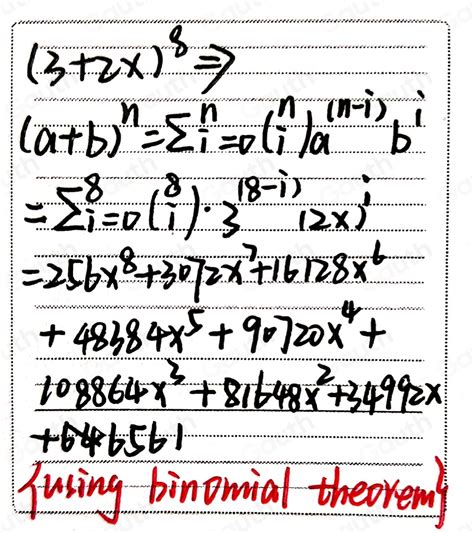 (3+2x)^8 ⇒
(a+b)^n = Σ_{i=0}^n (n i) a^{(n-i)} b^i
= Σ_{i=0}^8 (8 i) · 3^{(8-i)} (2x)^i
= 256x^8 + 3072x^7 + 16128x^6
+ 48384x^5 + 90720x^4 +
108864x^3 + 81648x^2 + 34992x
+ 6561
{using binomial theorem}